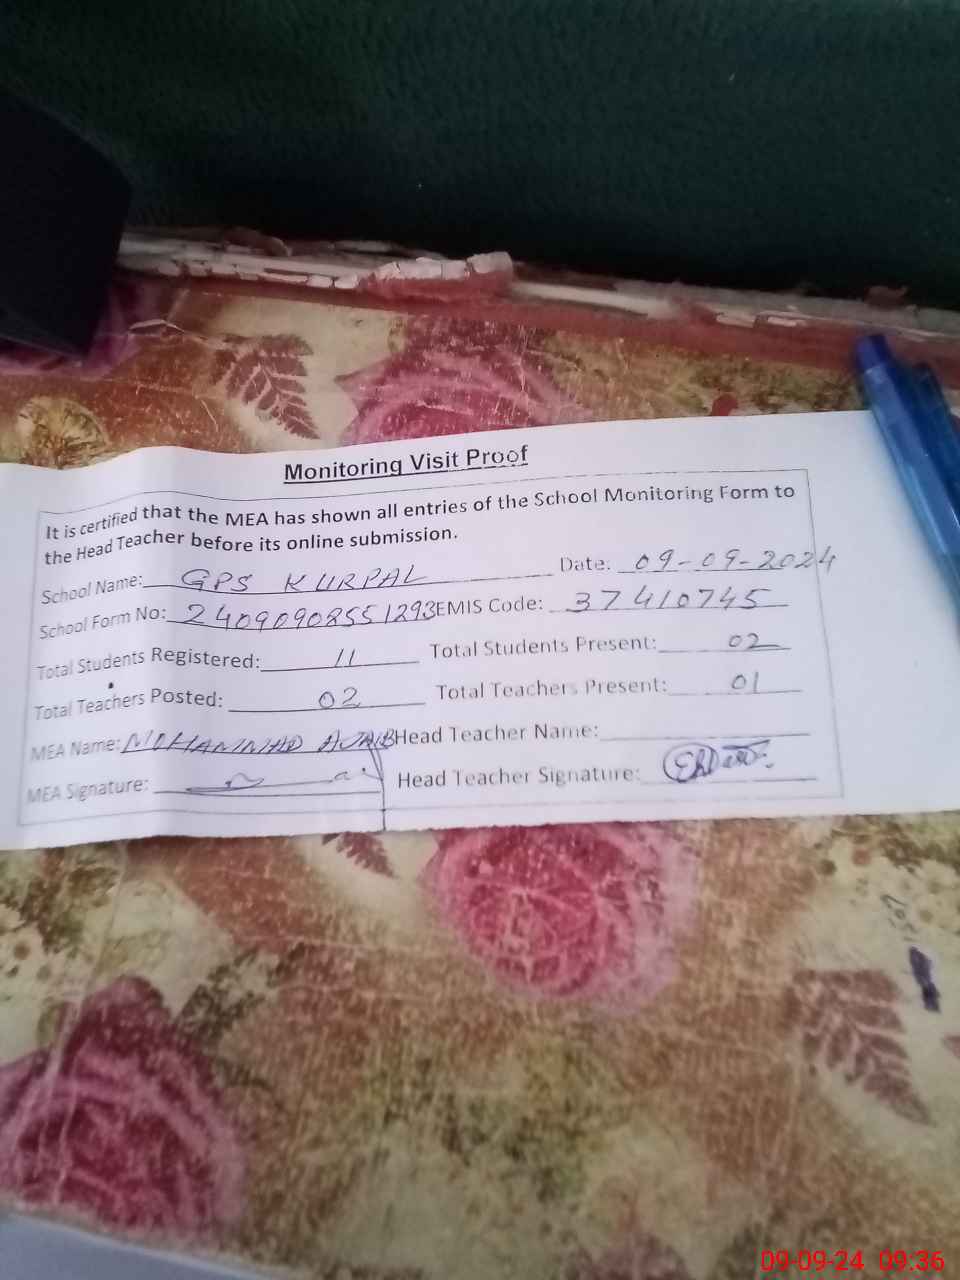 Monitoring Visit Proof
It is certified that the MEA has shown all entries of the School Monitoring Form to
the Head Teacher before its online submission.
School Name: GPS KURPAL Date: 09-09-2024
School Form No: 24090908551293 EMIS Code: 37410745
Total Students Registered: 11 Total Students Present: 02
Total Teachers Posted: 02 Total Teachers Present: 01
MEA Name: MOHAMMAD AJAIB Head Teacher Name:
MEA Signature: Head Teacher Signature:
09-09-24 09:36